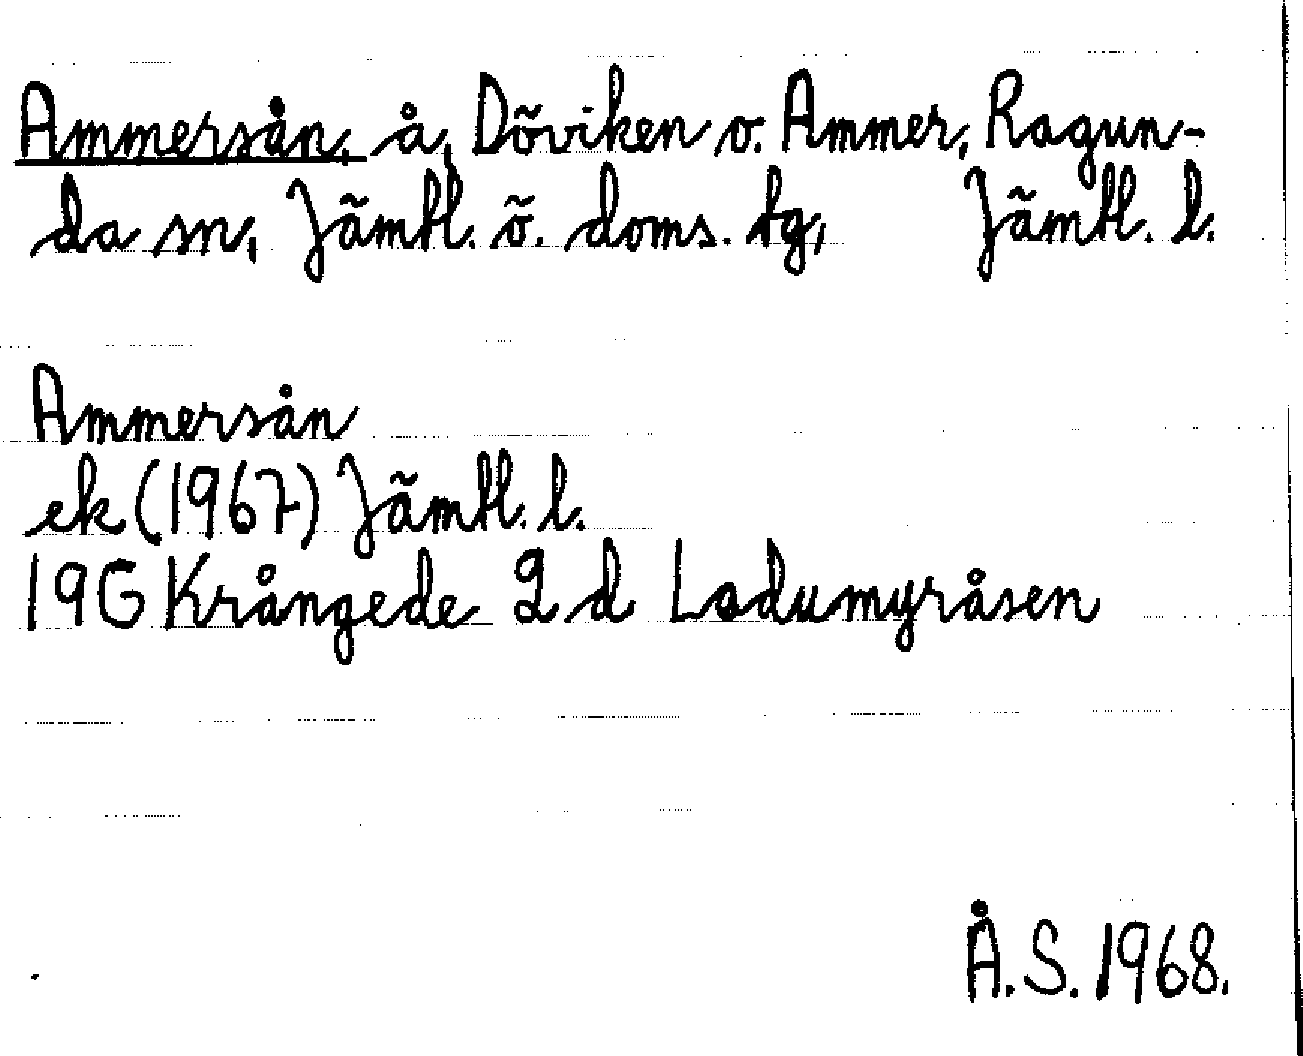 Ammersån, å, Döviken o. Ammer, Ragun-
da sn, Jämtl. ö. doms. tg, Jämtl. l.
Ammersån
ek (1967) Jämtl. l.
19G Krångede 2 d Ladumyråsen
Å.S. 1968.